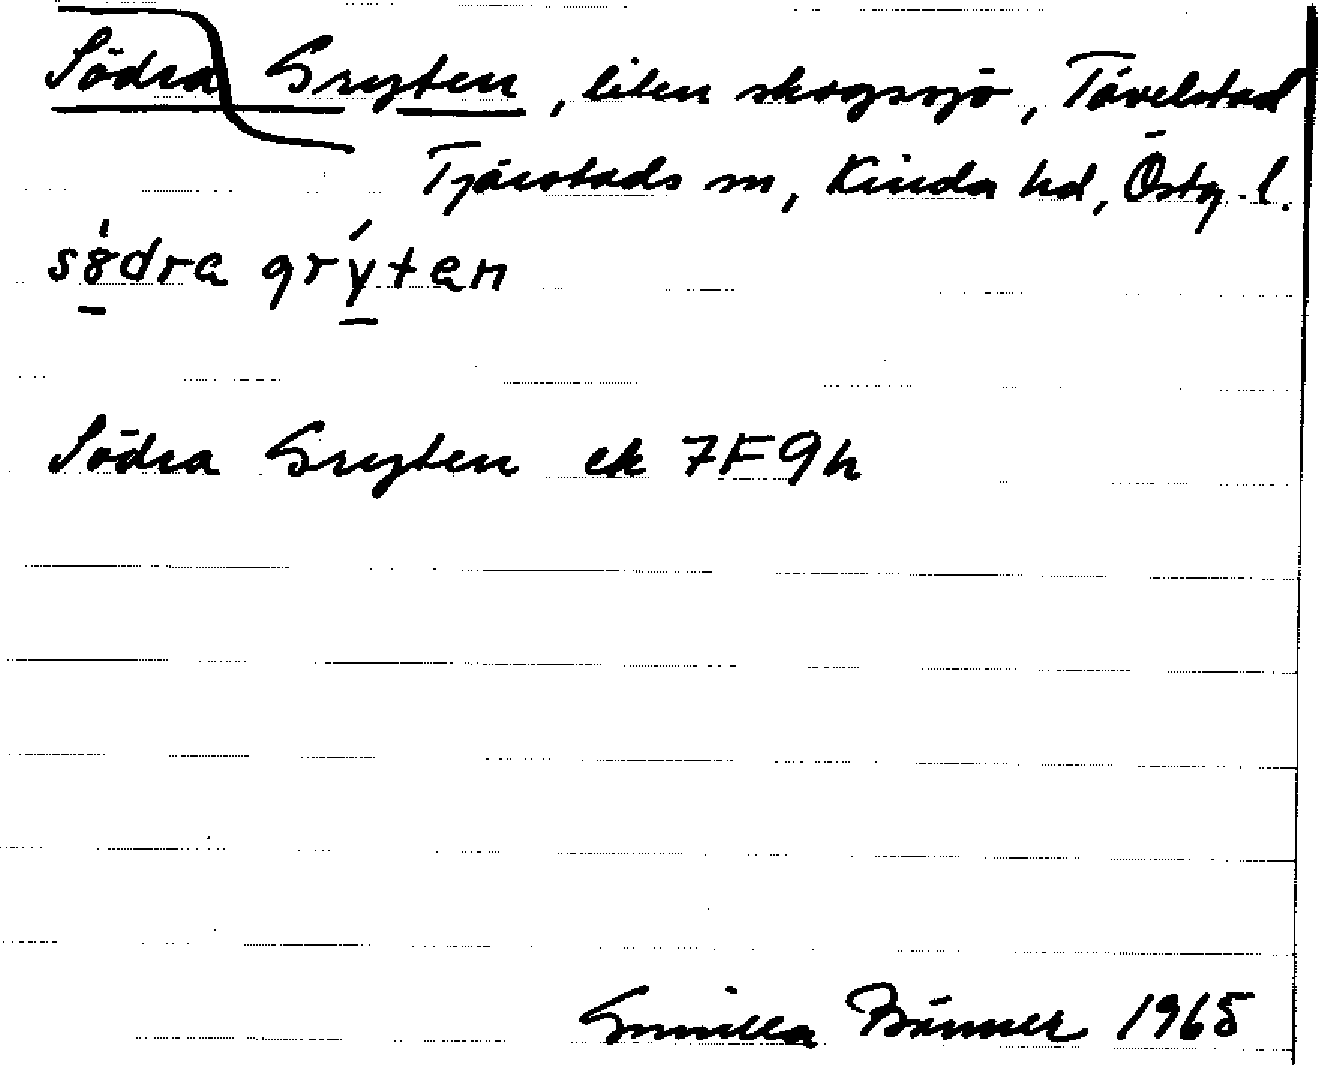 Södra Gryten, liten skogssjö, Tävelstad
Tjärstads sn, Kinda hd, Östg. l.
södra grýten
Södra Gryten ek 7F9h
Gunilla Bänner 1965